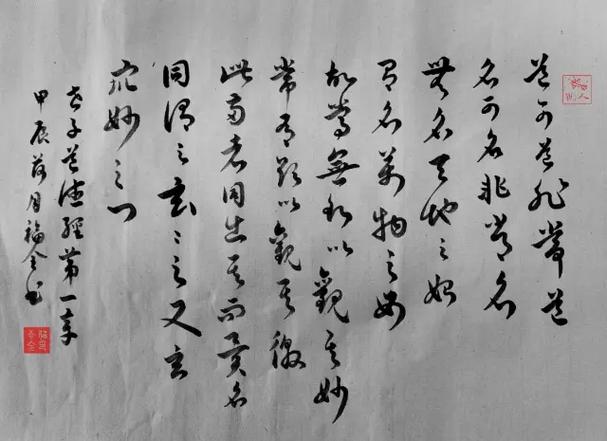 道可道非常道
名可名非常名
無名天地之始
有名萬物之母
故常無欲以觀其妙
常有欲以觀其徼
此兩者同出其而異名
同謂之玄〻之又玄
眾妙之门
老子道德經第一章
甲辰荷月福全书